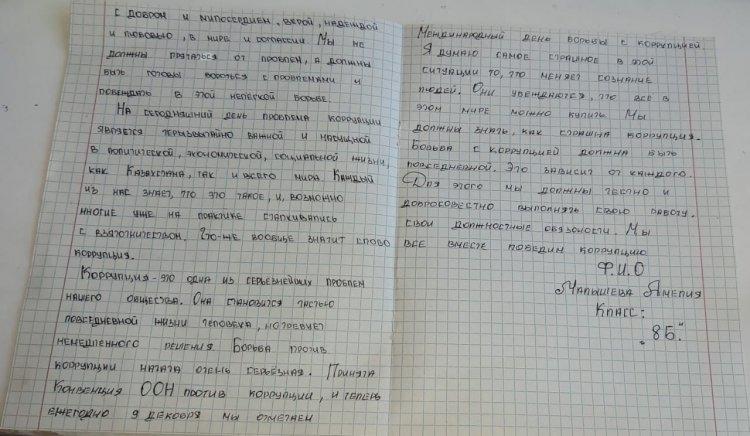 с добром и милосердием, верой, надеждой
и любовью, в мире и согласии. Мы не
должны прятаться от проблем, а должны
быть готовы бороться с проблемами и
победить в этой нелёгкой борьбе.
На сегодняшний день проблема коррупции
является чрезвычайно важной и насущной
в политической, экономической, социальной жизни,
как Казахстана, так и всего мира. Каждый
из нас знает, что это такое, и, возможно
многие уже на практике сталкивались
с взяточничеством. Что-же вообще значит слово
коррупция.
Коррупция - это одна из серьезнейших проблем
нашего общества. Она становится частью
повседневной жизни человека, но требует
немедленного решения. Борьба против
коррупции начата очень серьезная. Принята
Конвенция ООН против коррупции, и теперь
ежегодно 9 декобря мы отмечаем
Международный день борьбы с коррупцией.
Я думаю самое страшное в этой
ситуации то, что меняет сознание
людей. Они убеждаются, что все в
этом мире можно купить. Мы
должны знать, как страшна коррупция.
Борьба с коррупцией должна быть
повседневной. Это зависит от каждого.
Для этого мы должны честно и
добросовестно выполнять свою работу.
свои должностные обязоности. Мы
все вместе победим коррупцию
Ф.И.О
Чапышева Амелия
Класс:
„8Б."